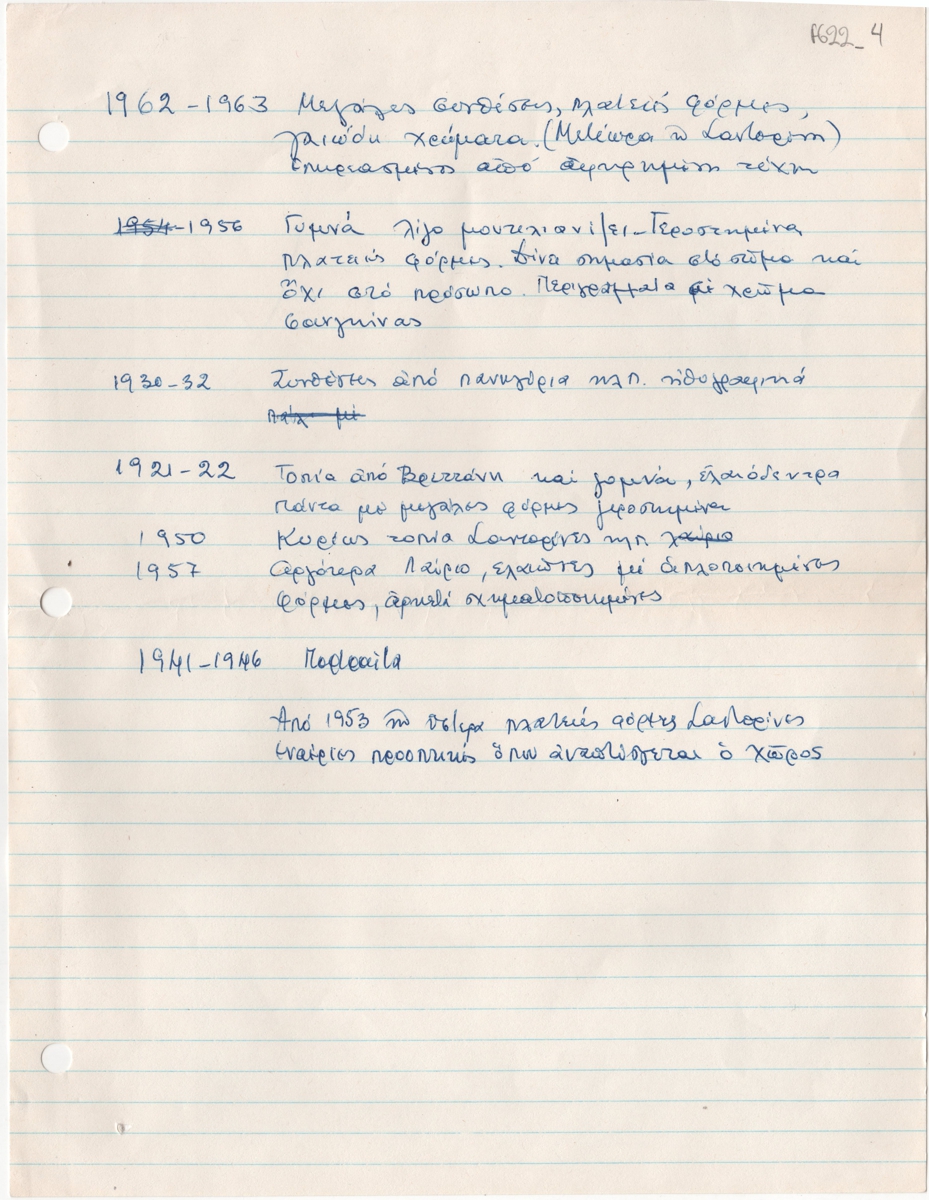 A622_4
1962-1963 Μεγάλες συνθέσεις, πλατειές φόρμες,
γαιώδη χρώματα. (Μετέωρα Σαντορίνη)
Επηρεασμένος από αφηρημένη τέχνη
1954-1956 Γυμνά λίγο μοντιλιανίζει - Γεροστημένα
πλατειές φόρμες. Δίνει σημασία στό σώμα καί
ὄχι στό πρόσωπο. Περιγράμματα μέ χρῶμα
σανγκίνας
1930-32 Συνθέσεις ἀπό πανηγύρια κλπ. ἠθογραφικά
1921-22 Τοπία ἀπό Βρεττάνη καί γυμνά, ἐλαιόδεντρα
πάντα μέ μεγάλες φόρμες γεροστημένα
1950 Κυρίως τοπία Σαντορίνης κλπ. Λαύριο
1957 Ἀργότερα Λαύριο, ἐλαιῶνες μέ ἁπλοποιημένες
φόρμες, ἀρκετά σχηματοποιημένες
1941-1946 Πορτραῖτα
Ἀπό 1953 ὕστερα πλατειές φόρμες Σαντορίνης
ἐναέριες προοπτικές ὅπου ἀναπτύσσεται ὁ χῶρος